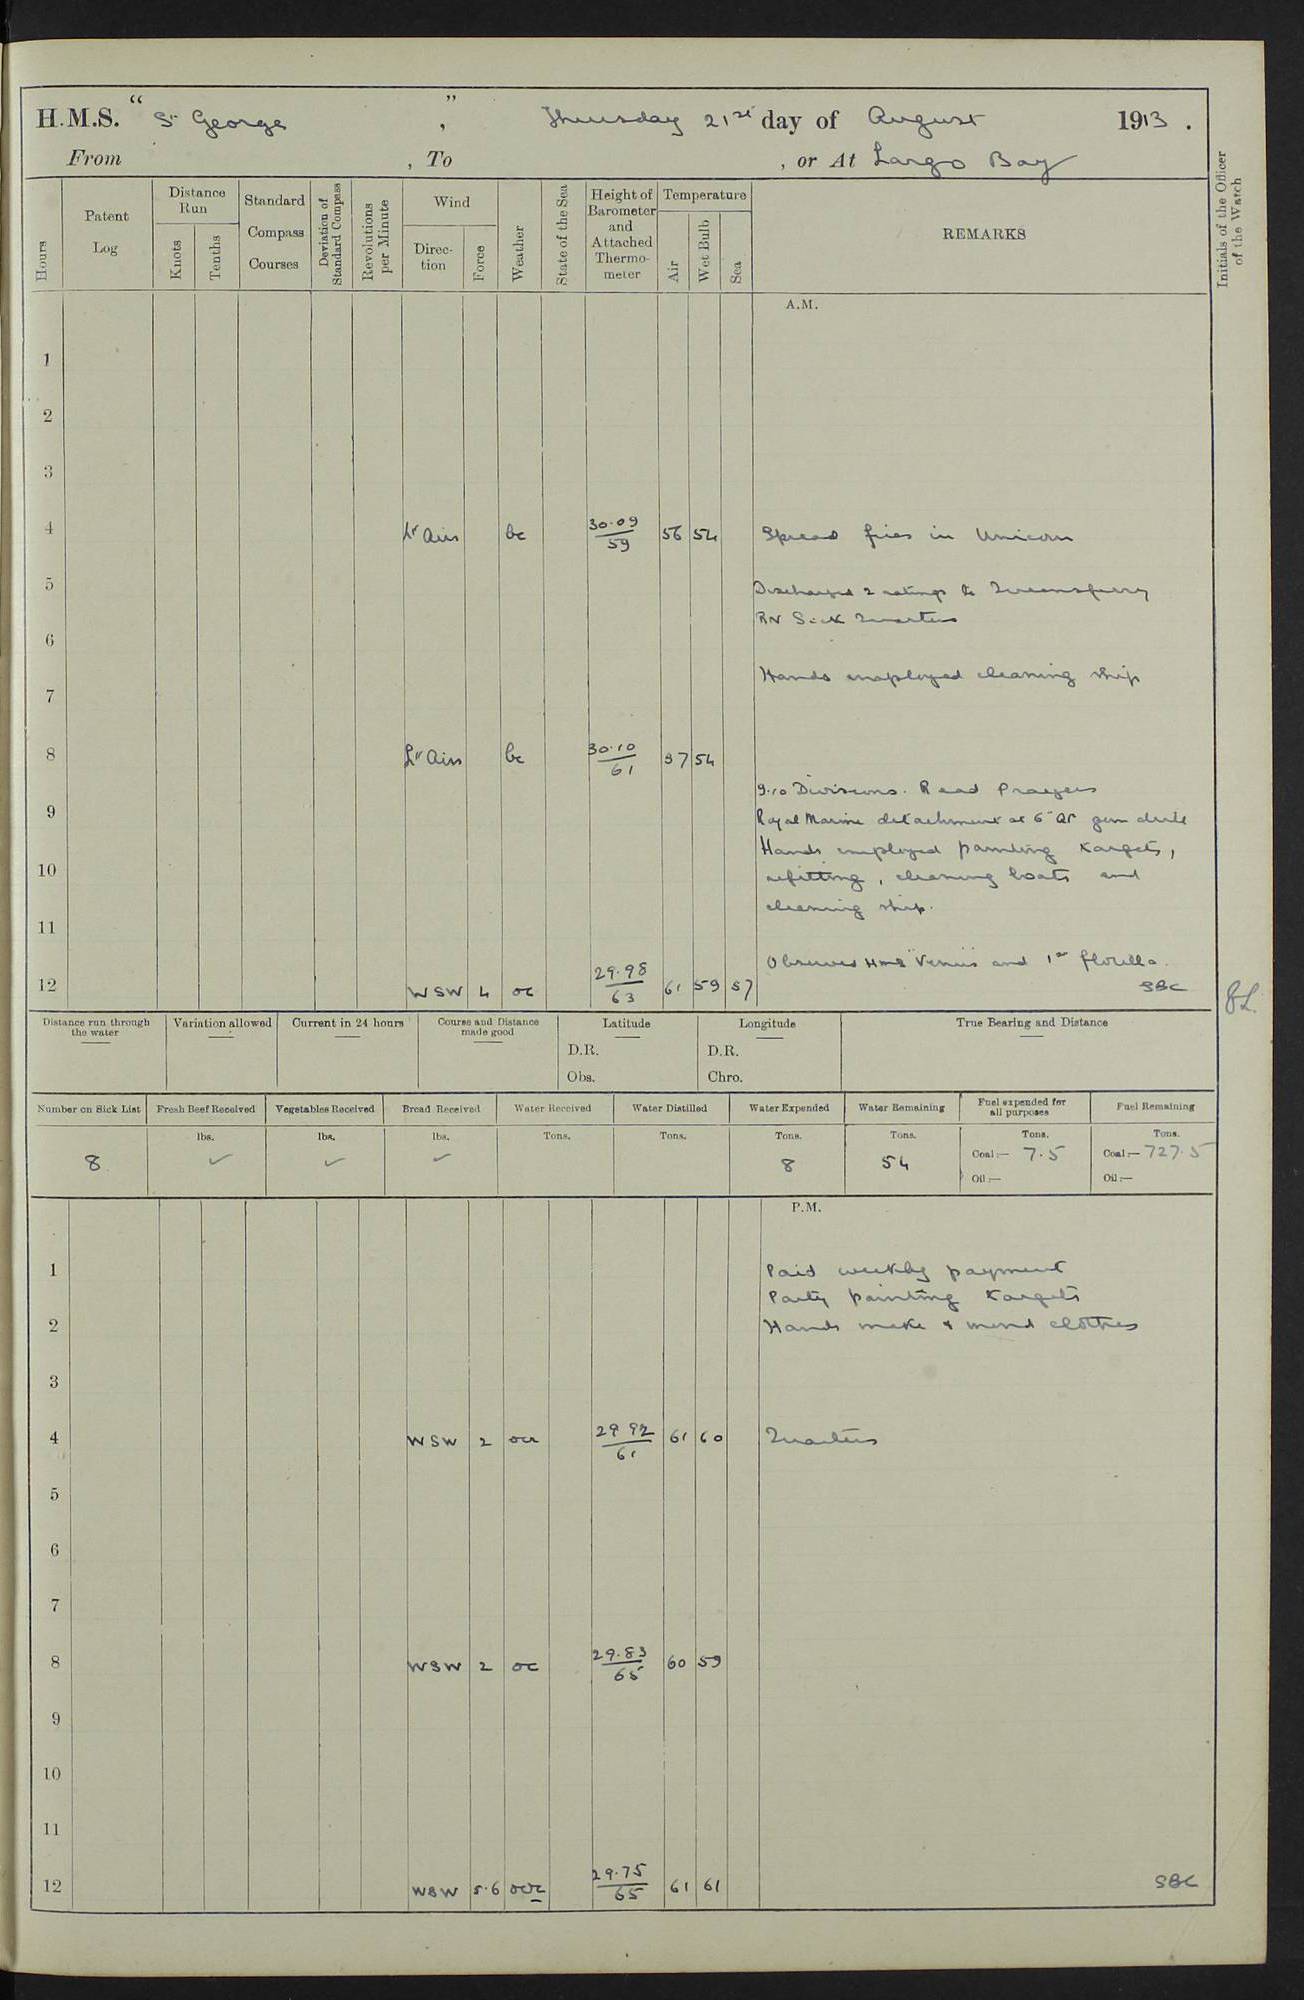 H.M.S. "St George", Thursday 21st day of August 1913.
From , To , or At Largo Bay
Hours
Patent Log
Distance Run
Knots
Tenths
Standard Compass Courses
Deviation of Standard Compass
Revolutions per Minute
Wind
Direction
Force
Weather
State of the Sea
Height of Barometer and Attached Thermometer
Temperature
Air
Wet Bulb
Sea
REMARKS
Initials of the Officer of the Watch
A.M.
1
2
3
4 Lt Airs bc 30.09/59 56 54 Spread fires in Unicorn
5 Discharged 2 ratings to Queensferry
RN Sick Quarters
6
Hands employed cleaning ship
7
8 Lt Airs bc 30.10/61 57 54
9.10 Divisions. Read Prayers
9 Royal Marine detachment at 6" QF gun drill
Hands employed painting targets,
10 refitting, cleaning boats and
cleaning ship.
11
Observed HMS "Venus" and 1st flotilla.
12 WSW 4 oc 29.98/63 61 59 57 SBC
Distance run through the water
Variation allowed
Current in 24 hours
Course and Distance made good
Latitude
D.R.
Obs.
Longitude
D.R.
Chro.
True Bearing and Distance
Number on Sick List
Fresh Beef Received
Vegetables Received
Bread Received
Water Received
Water Distilled
Water Expended
Water Remaining
Fuel expended for all purposes
Fuel Remaining
lbs. lbs. lbs. Tons. Tons. Tons. Tons. Tons. Tons.
8 ✓ ✓ ✓ 8 54 Coal:— 7.5 Coal:— 727.5
Oil:— Oil:—
P.M.
1 Paid weekly payment
Party painting targets
2 Hands make & mend clothes
3
4 WSW 2 29.92/61 61 60 Quarters
5
6
7
8 WSW 2 oc 29.83/65 60 59
9
10
11
12 WSW 5.6 29.75/65 61 61 SBC